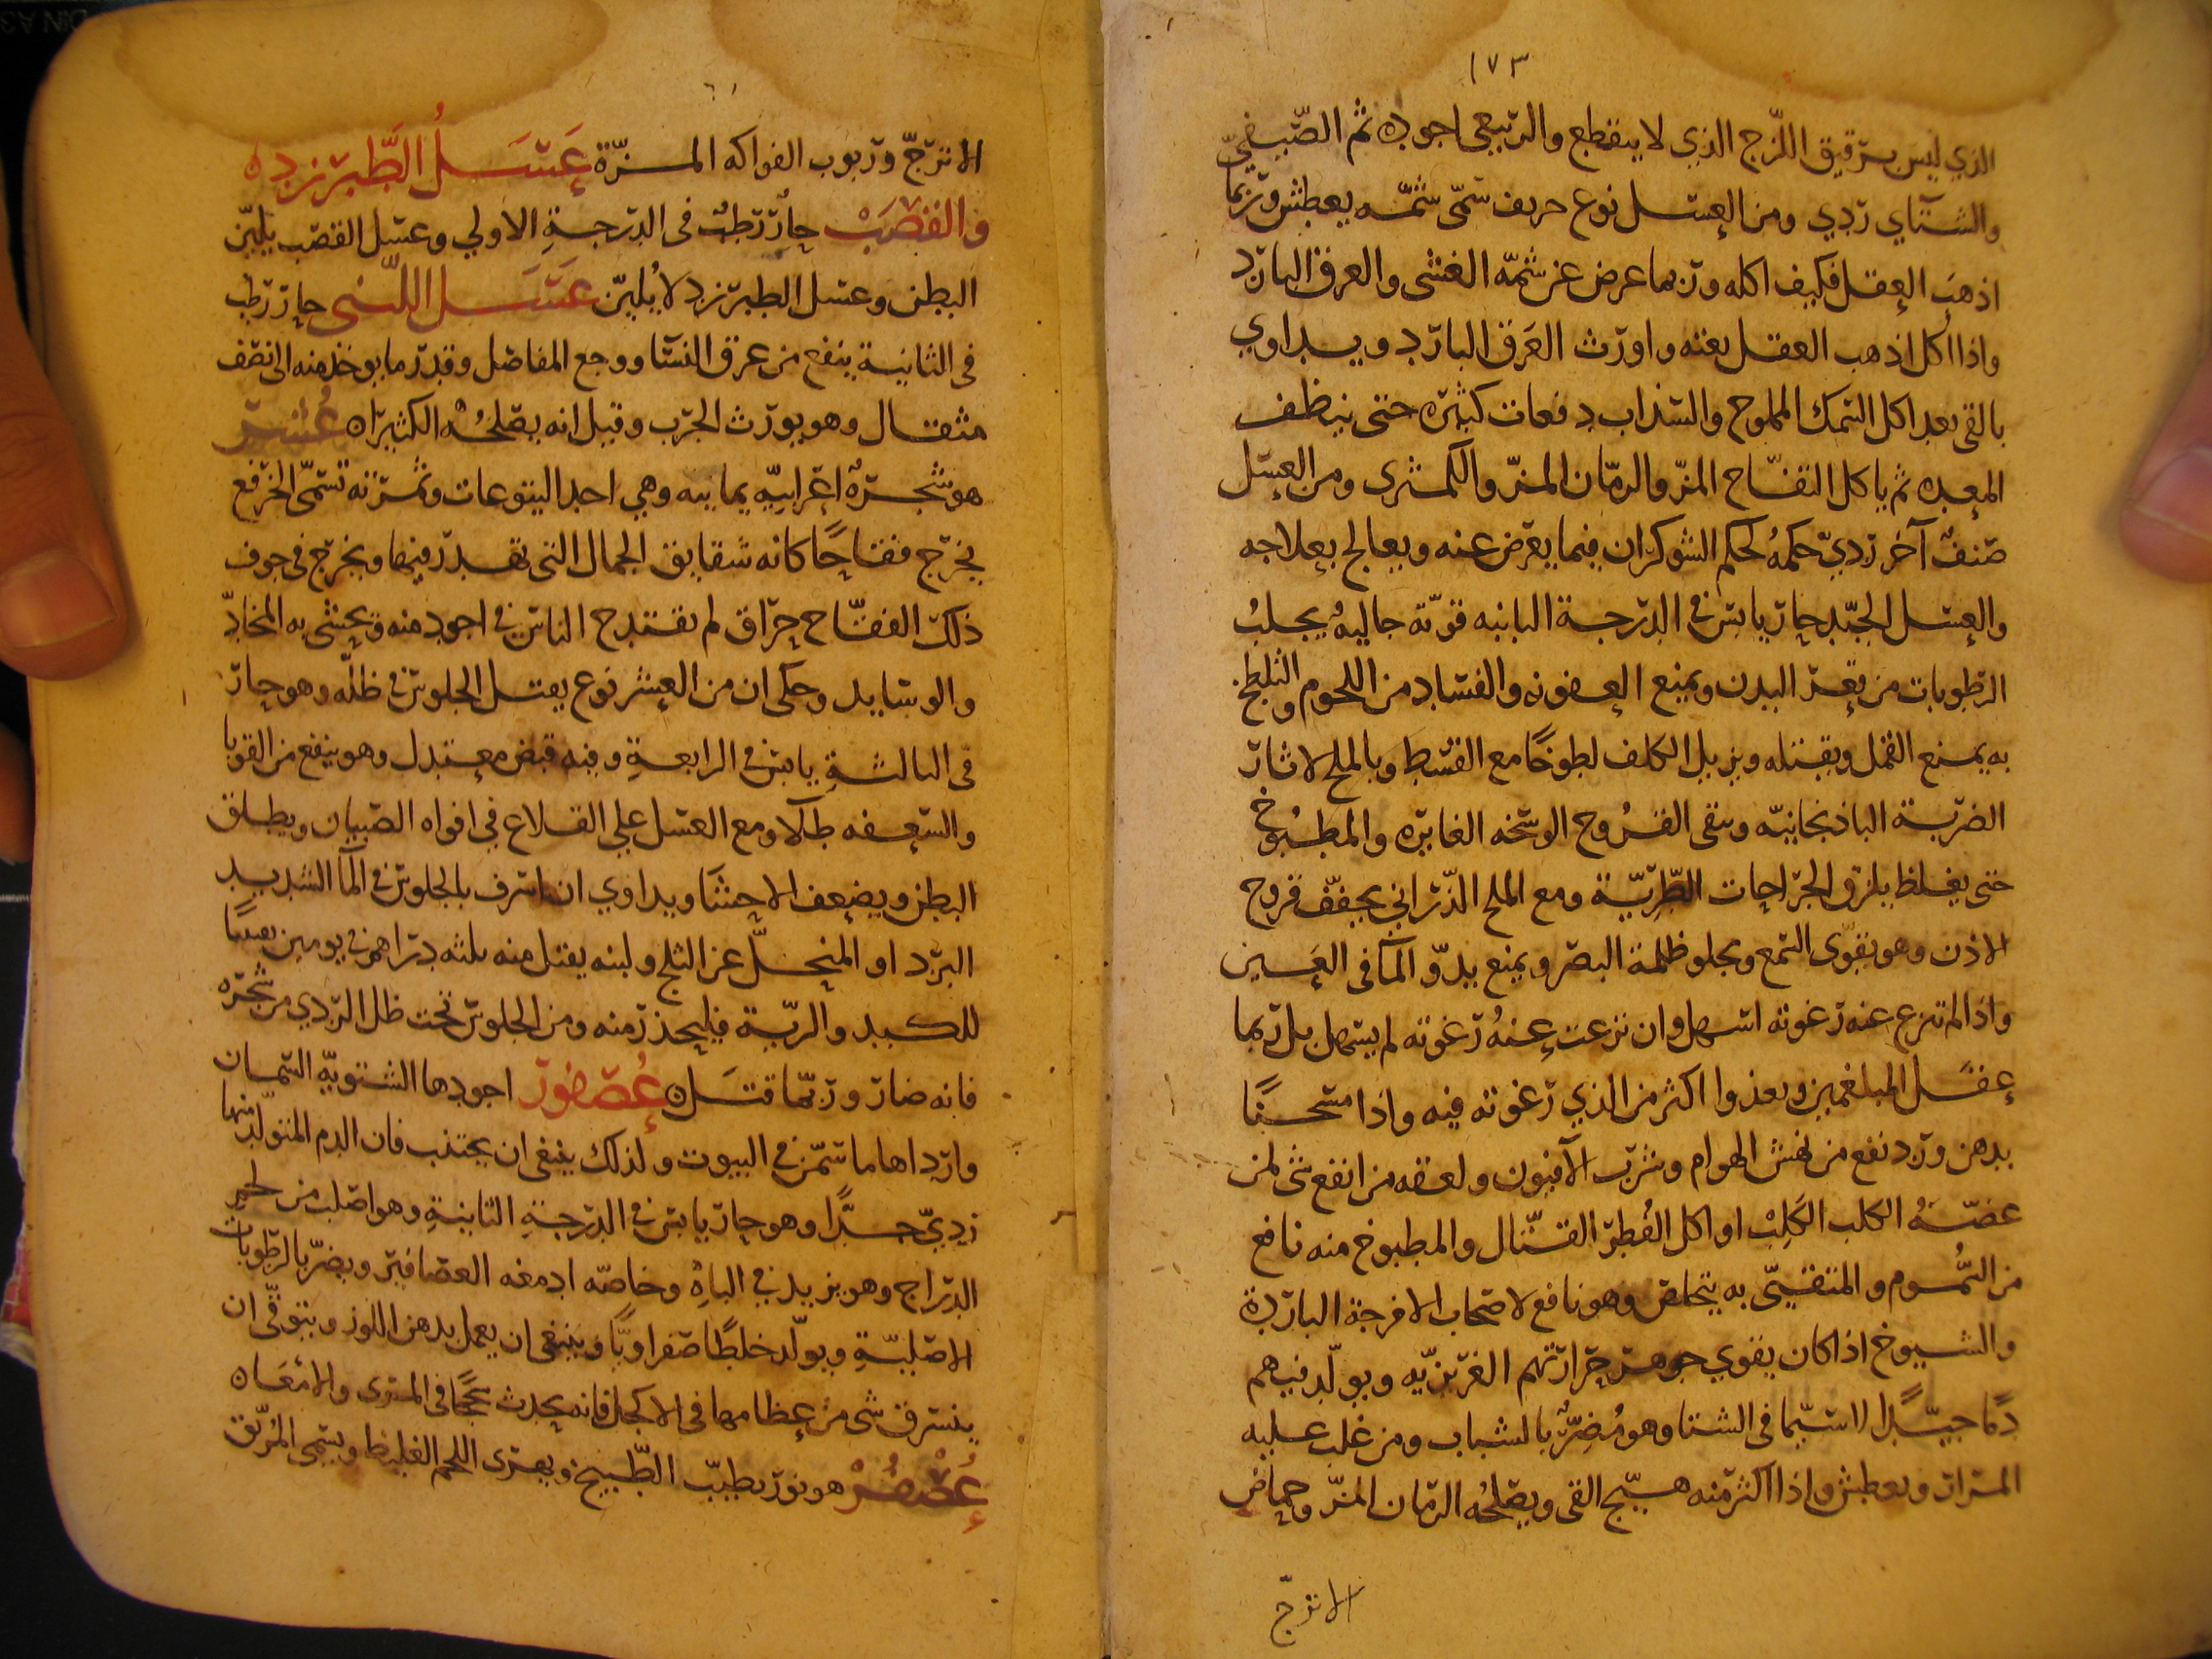 ١٧٣
الذي ليس برقيق اللزج الذي لا ينقطع والربيعي اجوده ثم الصيفيّ
والشتاي ردي ومن العسل نوع حريف سمّى شمّه يعطش وربما
اذهب العقل فكيف اكله وربما عرض عن شمّه الغشى والعرق البارد
واذا اكل اذهب العقل بغته واورث العَرق البارد ويداوي
بالقى بعد اكل السمك المملوح والسذاب دفعات كثيره حتى ينظف
المعده ثم ياكل التفّاح المزّ والرمّان المزّ والكمثرى ومن العسل
صنفٌ آخر رديّ حكمهُ كحكم الشوكران فيما يعرض عنه ويعالج بعلاجه
والعسل الجيّد حار يابس في الدرجة الثانيه قوّته جاليهٌ يجلبُ
الرطوبات من قعر البدن ويمنع العفونه والفساد من اللحوم والتلطخ
به يمنع القمل ويقتله ويزيل الكلف لطوخًا مع القسط وبالملح لاثار
الضربة الباذنجانيّه وينقى القرُوح الوسخه الغايره والمطبُوخ
حتى يغلظ يلزق الجراحات الطريّة ومع الملح الذّراني يجفّف قروح
الاذن وهو يقوّى السمع ويجلو ظلمة البصر ويمنع بدوّ المآ في العَين
واذا لم تنزع عنه رغوته اسهل وان نزعت عنهُ رغوته لم يسهل بل ربما
عقَل المبلغمين ويغذوا اكثر من الذي رغوته فيه واذا سخنًا
بدهن ورد نفع من نهش الهوام وشرب الآفيون ولعقه من انفع شى لمن
عضّهُ الكلب الكَلِبْ او اكل الفُطر القتّال والمطبوخ منه نافع
من السُّموم والمتقيّى به يتخلص وهو نافع لاصحاب الامزجة الباردة
والشيوخ اذا كان يقوي جوهر حرارتهم الغريزيّه ويولّد فيهم
دمًا جيّدًا لاسيّما في الشتا وهو مُضِرٌّ بالشباب ومن غلب عليه
المرار ويعطش واذا اكثر منه هيّج القى ويصلحُه الرمّان المزّ وحماض
الاترجّ
الاترجّ وربوب الفواكه المزّة عَسَلُ الطَّبرزده
والقصَبْ حار رطبٌ فى الدرجة الاولي وعسل القصب يليّن
البطن وعسل الطبرزد لا يُليّن عَسَل اللّبنى حار رطب
فى الثانية ينفع من عرق النسّا ووجع المفاصل وقدر ما يوخذ منه الى نصف
مثقال وهو يورث الجرب وقيل انه يصلحُه الكثيراه عُشر
هو شجرةٌ اعرابيّه يمانيه وهي احد اليتوعات وثمرته تسمّى الخرفع
يخرج نفّاخًا كانه شقايق الجمال التى تهدر فيها ويخرج في جوف
ذلك النفّاخ حرّاق لم يقتدح الناس في اجود منه ويحشى به المخادّ
والوسايد وحكى ان من العشر نوع يقتل الجلوس في ظلّه وهو حار
في الثالثةِ يابس في الرابعةِ وفيه قبض معتدل وهو ينفع من القوبا
والسّعفه طلآ ومع العسل علي القلاع في افواه الصبيان ويطلق
البطن ويضعف الاحشَا ويداوي ان اسرف بالجلوس في المآ الشديد
البرد او المنحلّ عن الثلج ولبنه يقتل منه ثلثه دراهم في يومين تفتيتًا
للكبد والريّة فليحذر منه ومن الجلوس تحت ظل الردي من شجره
فانه ضار وربّما قتَل ه عُصفور اجودها الشتويّه السّمان
واردٔاها ما سمّن في البيوت ولذلك ينبغى ان يجتنب فان الدم المتولّد منها
رديّ جدًّا وهو حار يابس في الدرجةِ الثانيةِ وهو اصلب من لحم
الدرّاج وهو يزيد في الباهْ وخاصّه ادمغه العصافير ويضرّ بالرطوبات
الاصليّةِ ويولّد خلطًا صفراويًّا وينبغي ان يعمل بدهن اللوز ويتوقّى ان
ينسرق شى من عظامها في الاكل فانه يحدث سحجًا في المرى والامعاه
عُصْفُرْ هو نور يطيّب الطّبيخ ويهرّى اللحم الغليظ ويسمى المُرّيق